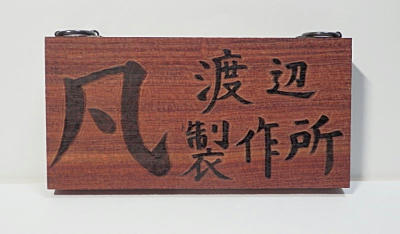 凡
渡辺
製作所